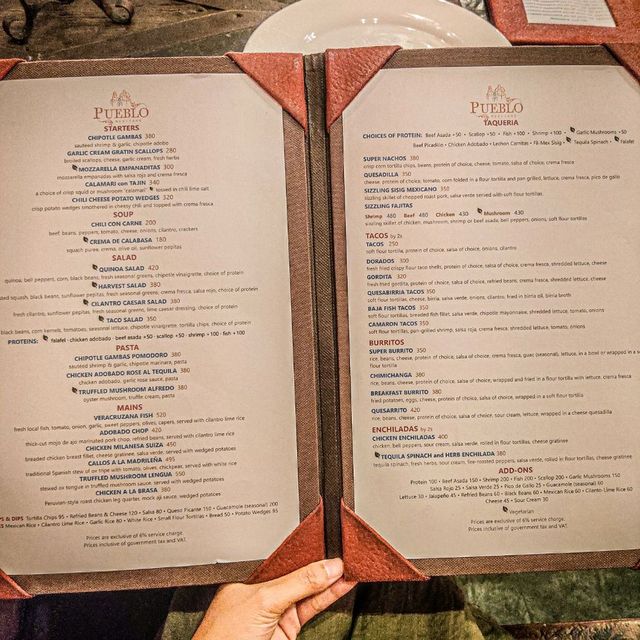 PUEBLO
STARTERS
CHIPOTLE GAMBAS 380
sauteed shrimp & garlic, chipotle adobo
GARLIC CREAM GRATIN SCALLOPS 280
broiled scallops, cheese, garlic cream, fresh herbs
MOZZARELLA EMPANADITAS 300
mozzarella empanadas with salsa roja and crema fresca
CALAMARI con TAJIN 340
a choice of crisp squid or mushroom "calamari" tossed in chili lime salt
CHILI CHEESE POTATO WEDGES 320
crisp potato wedges smothered in cheesy chili and topped with crema fresca
SOUP
CHILI CON CARNE 200
beef, beans, peppers, tomato, cheese, onions, cilantro, crackers
CREMA DE CALABASA 180
squash puree, crema, olive oil, sunflower pepitas
SALAD
QUINOA SALAD 420
quinoa, bell peppers, corn, black beans, fresh seasonal greens, chipotle vinaigrette, choice of protein
HARVEST SALAD 380
squash, black beans, sunflower pepitas, fresh seasonal greens, crema fresca, salsa rojo, choice of protein
CILANTRO CAESAR SALAD 380
fresh cilantro, sunflower pepitas, fresh seasonal greens, lime caesar dressing, choice of protein
TACO SALAD 350
black beans, corn kernels, tomatoes, seasonal lettuce, chipotle vinaigrette, tortilla chips, choice of protein
PROTEINS: falafel • chicken adobado • beef asada +50 • scallop +50 • shrimp +100 • fish +100
PASTA
CHIPOTLE GAMBAS POMODORO 380
sauteed shrimp & garlic, chipotle marinara, pasta
CHICKEN ADOBADO ROSE AL TEQUILA 380
chicken adobado, garlic rose sauce, pasta
TRUFFLED MUSHROOM ALFREDO 380
oyster mushroom, truffle cream, pasta
MAINS
VERACRUZANA FISH 520
fresh local fish, tomato, onion, garlic, sweet peppers, olives, capers, served with cilantro lime rice
ADOBADO CHOP 420
thick-cut mojo de ajo marinated pork chop, refried beans, served with cilantro lime rice
CHICKEN MILANESA SUIZA 450
breaded chicken breast fillet, cheese gratinee, salsa verde, served with potato wedges
CALLOS A LA MADRILEÑA 495
traditional Spanish stew of ox tripe with tomato, olives, chickpeas, served with white rice
TRUFFLED MUSHROOM LENGUA 550
stewed ox tongue in truffled mushroom sauce, served with wedged potatoes
CHICKEN A LA BRASA 380
Peruvian-style roast chicken leg quarter, mock aji sauce, wedged potatoes
& DIPS Tortilla Chips 95 • Refried Beans & Cheese 120 • Salsa 80 • Queso Picante 150 • Guacamole (seasonal) 200
Mexican Rice • Cilantro Lime Rice • Garlic Rice 80 • White Rice • Small Flour Tortillas • Bread 50 • Potato Wedges 95
Prices are exclusive of 6% service charge.
Prices inclusive of government tax and VAT.
PUEBLO
TAQUERIA
CHOICES OF PROTEIN: Beef Asada +50 • Scallop +50 • Fish +100 • Shrimp +100 • Garlic Mushrooms +50
Beef Picadillo • Chicken Adobado • Lechon Carnitas • Fil-Mex Sisig • Tequila Spinach • Falafel
SUPER NACHOS 380
crisp corn tortilla chips, beans, protein of choice, cheese, tomato, salsa of choice, crema fresca
QUESADILLA 350
cheese, protein of choice, tomato, corn folded in a flour tortilla and pan grilled, lettuce, crema fresca, pico de gallo
SIZZLING SISIG MEXICANO 350
sizzling skillet of chopped roast pork, salsa verde served with soft flour tortillas.
SIZZLING FAJITAS
Shrimp 480 Beef 480 Chicken 430 Mushroom 430
sizzling skillet of chicken, mushroom, shrimp or beef asada, bell peppers, onions, soft flour tortillas
TACOS by 2s
TACOS 250
soft flour tortillas, protein of choice, salsa of choice, onions, cilantro
DORADOS 300
fresh fried crispy flour taco shells, protein of choice, salsa of choice, crema fresca, shredded lettuce, cheese
GORDITA 320
fresh fried gordita, protein of choice, salsa of choice, refried beans, crema fresca, shredded lettuce, cheese
QUESABIRRIA TACOS 350
soft flour tortillas, cheese, birria, salsa verde, onions, cilantro, fried in birria oil, birria broth
BAJA FISH TACOS 350
soft flour tortillas, breaded fish fillet, salsa verde, chipotle mayonnaise, shredded lettuce, tomato, onions
CAMARON TACOS 350
soft flour tortillas, pan-grilled shrimp, salsa rojo, crema fresca, shredded lettuce, tomato, onions
BURRITOS
SUPER BURRITO 350
rice, beans, cheese, protein of choice, salsa of choice, crema fresca, guac (seasonal), lettuce, in a bowl or wrapped in a
flour tortilla
CHIMICHANGA 380
rice, beans, cheese, protein of choice, salsa of choice, wrapped and fried in a flour tortilla with lettuce, crema fresca
BREAKFAST BURRITO 380
fried potatoes, eggs, cheese, protein of choice, salsa of choice, wrapped in a soft flour tortilla
QUESARRITO 420
rice, beans, cheese, protein of choice, salsa of choice, sour cream, lettuce, wrapped in a cheese quesadilla
ENCHILADAS by 2s
CHICKEN ENCHILADAS 400
chicken, bell peppers, sour cream, salsa verde, rolled in flour tortillas, cheese gratinee
TEQUILA SPINACH and HERB ENCHILADA 380
tequila spinach, fresh herbs, sour cream, fire-roasted peppers, salsa verde, rolled in flour tortillas, cheese gratinee
ADD-ONS
Protein 100 • Beef Asada 150 • Shrimp 200 • Fish 200 • Scallop 200 • Garlic Mushrooms 150
Salsa Rojo 25 • Salsa Verde 25 • Pico de Gallo 25 • Guacamole (seasonal) 60
Lettuce 30 • Jalapeño 45 • Refried Beans 60 • Black Beans 60 • Mexican Rice 60 • Cilantro Lime Rice 60
Cheese 45 • Sour Cream 30
Vegetarian
Prices are exclusive of 6% service charge.
Prices inclusive of government tax and VAT.